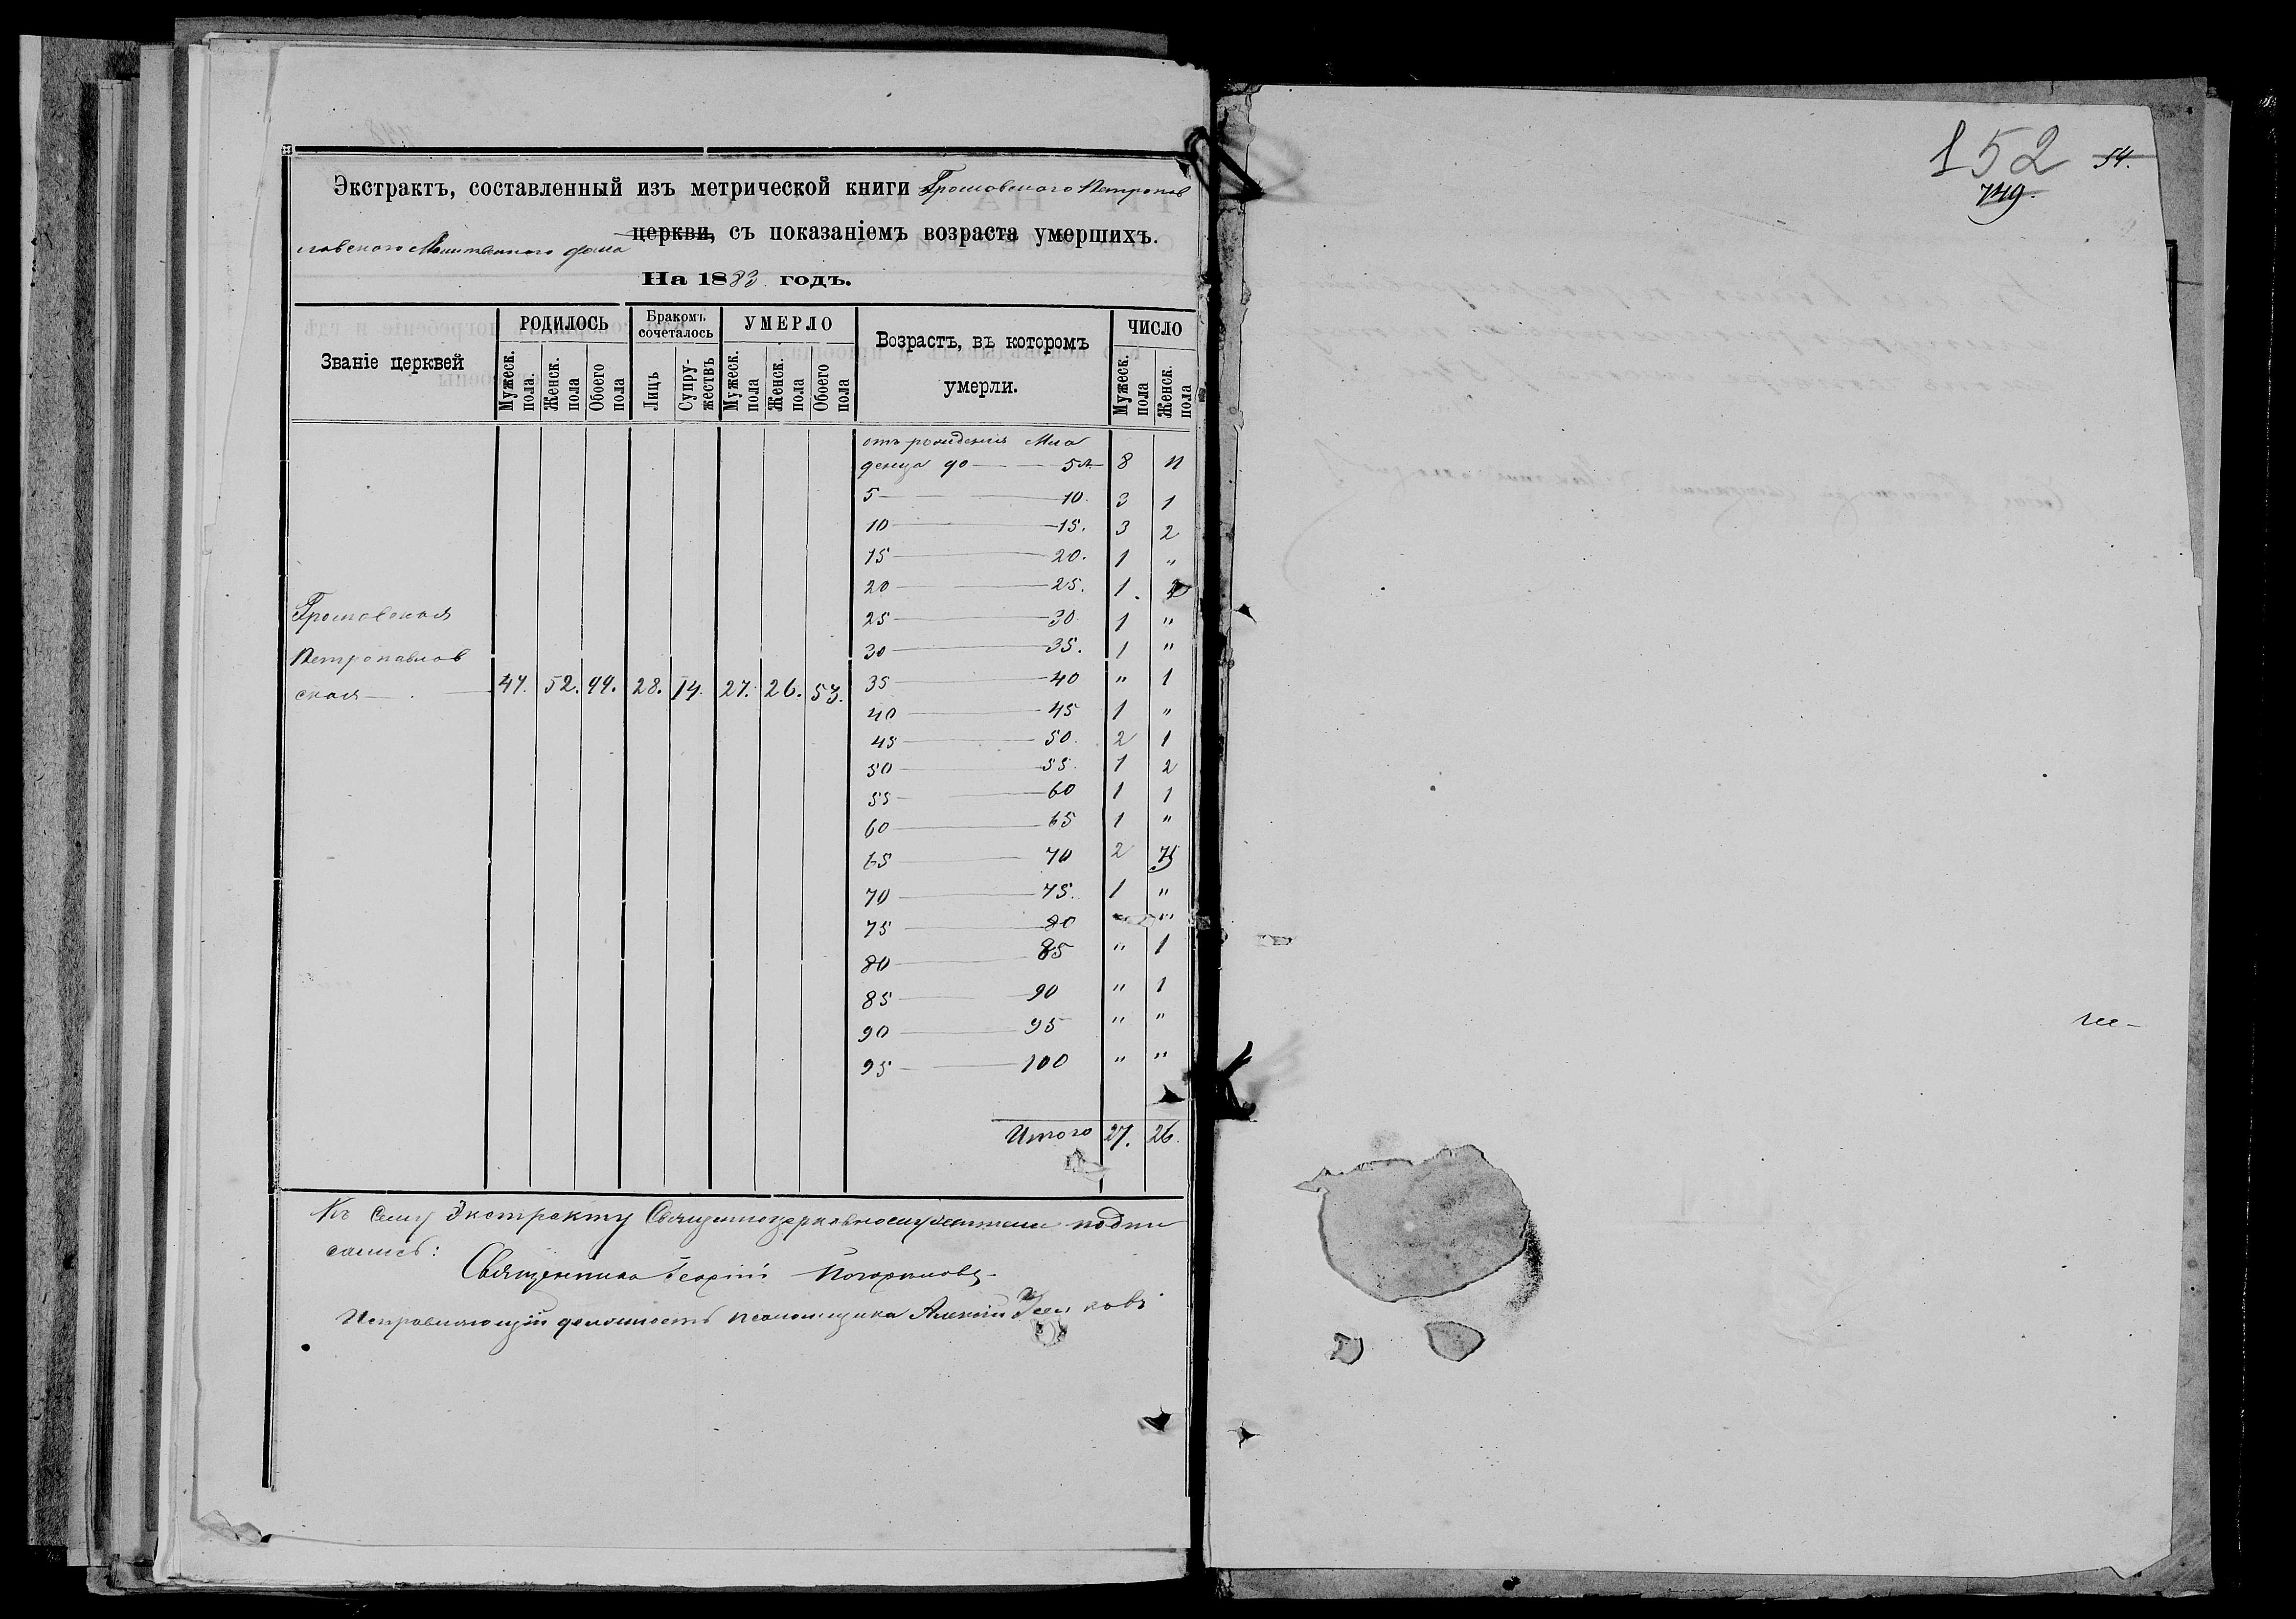 Экстрактъ, составленный изъ метрической книги Громовского Петропав
ловского Молитвенного дома церкви, съ показаніемъ возраста умершихъ.
На 1883 годъ.
Званіе церквей
РОДИЛОСЬ
Мужеск. пола.
Женск. пола
Обоего пола
Бракомъ сочеталось
Лицъ
Супружествъ
УМЕРЛО
Мужеск. пола
Женск. пола
Обоего пола
Возрастъ, въ которомъ умерли.
ЧИСЛО
Мужеск. пола
Женск. пола
отъ рожденія Мла
денца до — 5 л. 8 11
5 — 10. 3 1
10 — 15. 3 2
15 — 20. 1 "
20 — 25. 1.
25 — 30. 1 "
30 — 35. 1 "
Громовская
Петропавлов
ская — 47. 52. 99. 28. 14. 27. 26. 53.
35 — 40 " 1
40 — 45 1 "
45 — 50. 2 1
50 — 55. 1 2
55 — 60 1 1
60 — 65 1 "
65 — 70 2
70 — 75. 1 "
75 — 80 " "
80 — 85 " 1
85 — 90 " 1
90 — 95 " "
95 — 100 " "
Итого 27. 26.
Къ сему Экстракту Священноцерковнослужители подпи
сались:
Священникъ Георгій
Исправляющій должность псаломщика Алексій
152 54.
749.